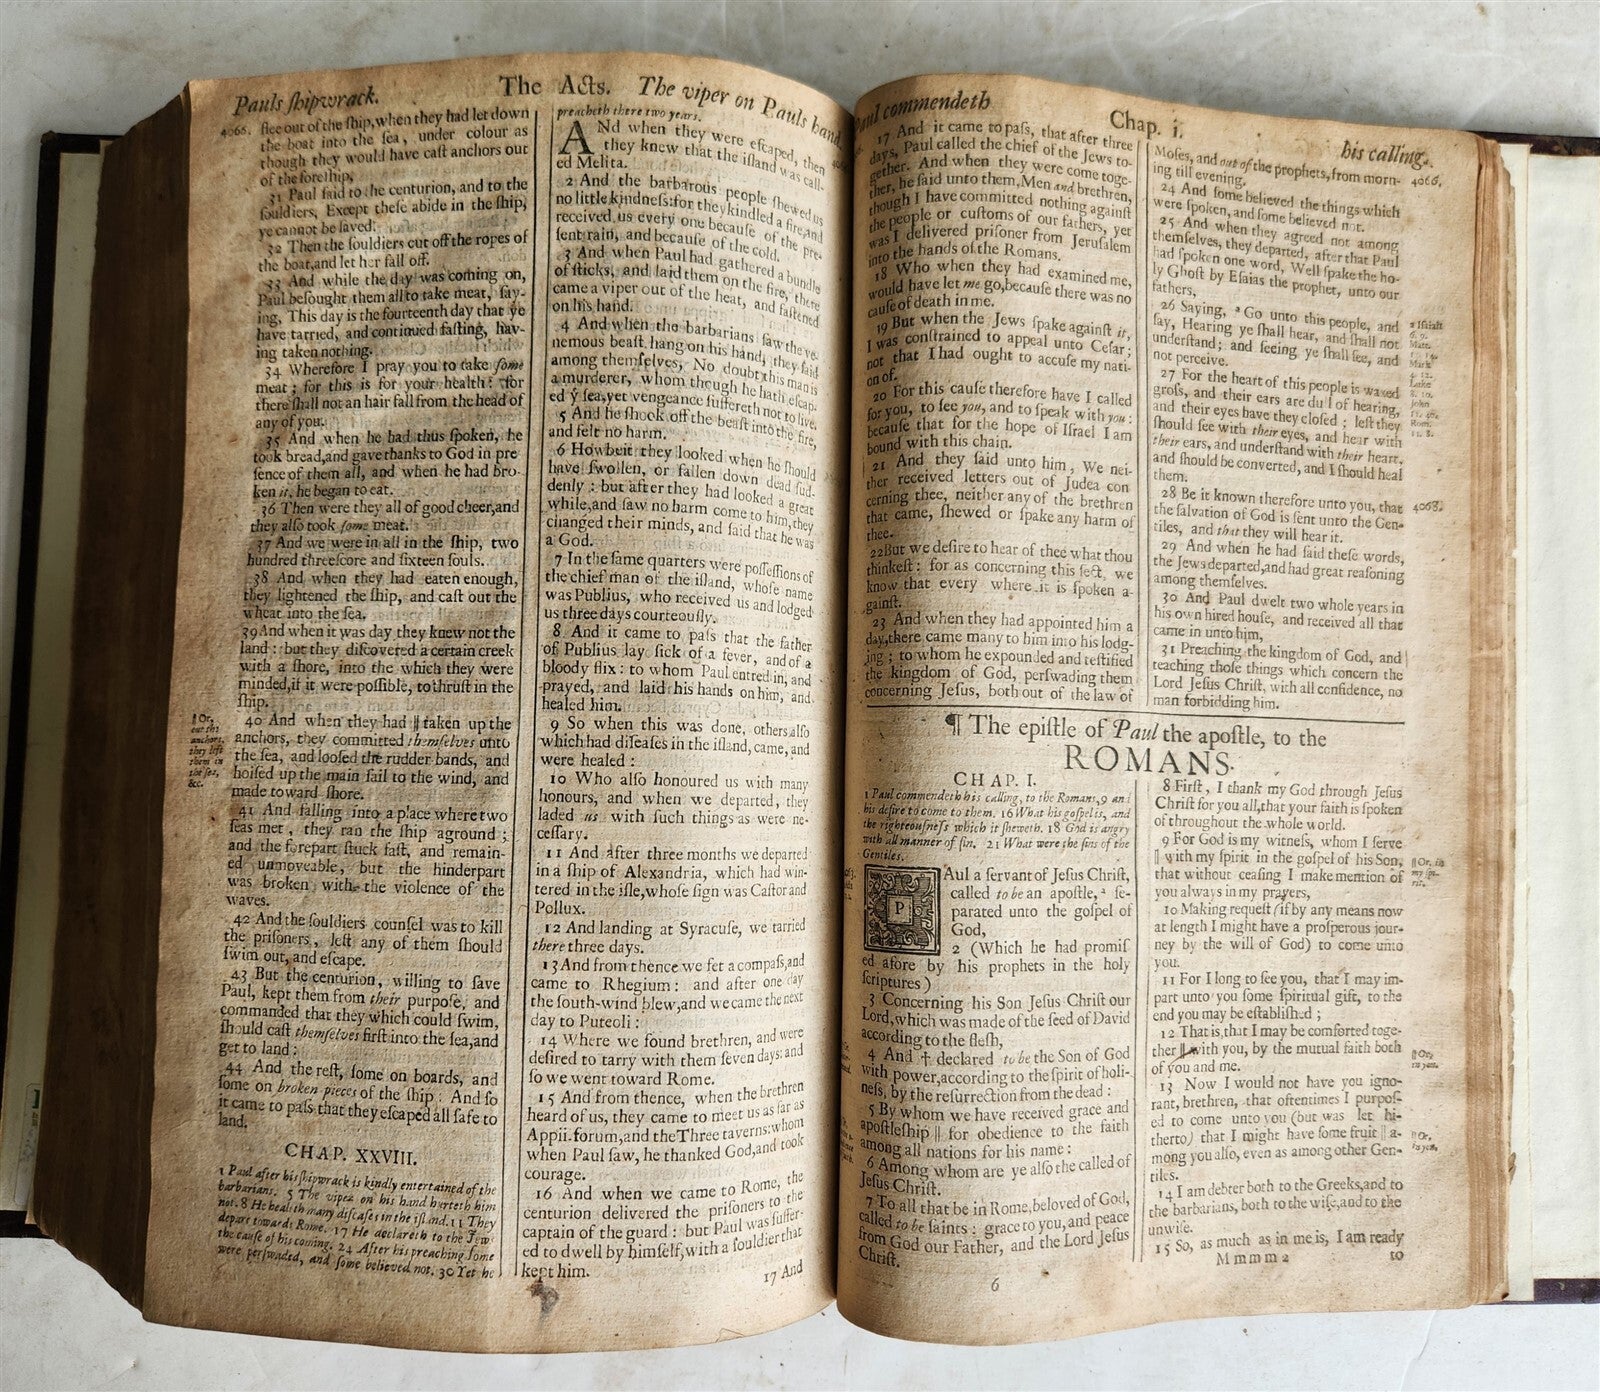 Pauls ſhipwrack.
The Acts.
The viper on Pauls hand,
4066.
flee out of the ſhip, when they had let down
the boat into the ſea, under colour as
though they would have caſt anchors out
of the foreſhip,
31 Paul ſaid to the centurion, and to the
ſouldiers, Except theſe abide in the ſhip,
ye cannot be ſaved.
32 Then the ſouldiers cut off the ropes of
the boat, and let her fall off.
33 And while the day was coming on,
Paul beſought them all to take meat, ſay-
ing, This day is the fourteenth day that ye
have tarried, and continued faſting, hav-
ing taken nothing.
34 Wherefore I pray you to take ſome
meat; for this is for your health: for
there ſhall not an hair fall from the head of
any of you.
35 And when he had thus ſpoken, he
took bread, and gave thanks to God in pre
ſence of them all, and when he had bro-
ken it, he began to eat.
36 Then were they all of good cheer, and
they alſo took ſome meat.
37 And we were in all in the ſhip, two
hundred threeſcore and ſixteen ſouls.
38 And when they had eaten enough,
they lightened the ſhip, and caſt out the
wheat into the ſea.
39 And when it was day, they knew not the
land: but they diſcovered a certain creek
with a ſhore, into the which they were
minded, if it were poſſible, to thruſt in the
ſhip.
40 And when they had || taken up the
anchors, they committed themſelves unto
the ſea, and looſed the rudder bands, and
hoiſed up the main ſail to the wind, and
made toward ſhore.
41 And falling into a place where two
ſeas met, they ran the ſhip aground;
and the forepart ſtuck faſt, and remain-
ed unmoveable, but the hinderpart
was broken with the violence of the
waves.
42 And the ſouldiers counſel was to kill
the priſoners, leſt any of them ſhould
ſwim out, and eſcape.
43 But the centurion, willing to ſave
Paul, kept them from their purpoſe, and
commanded that they which could ſwim,
ſhould caſt themſelves firſt into the ſea, and
get to land:
44 And the reſt, ſome on boards, and
ſome on broken pieces of the ſhip: And ſo
it came to paſs that they eſcaped all ſafe to
land.
|| Or,
cut the
anchors,
they left
them in
the ſea,
&c.
CHAP. XXVIII.
1 Paul after his ſhipwrack is kindly entertained of the
barbarians. 5 The viper on his hand hurteth him
not. 8 He healeth many diſeaſes in the iſland. 11 They
depart towards Rome. 17 He declareth to the Jews
the cauſe of his coming. 24 After his preaching ſome
were perſwaded, and ſome believed not. 30 Yet he
preacheth there two years.
ANd when they were eſcaped, then
they knew that the iſland was call-
ed Melita.
2 And the barbarous people ſhewed us
no little kindneſs: for they kindled a fire, and
received us every one becauſe of the pre-
ſent rain, and becauſe of the cold.
3 And when Paul had gathered a bundle
of ſticks, and laid them on the fire, there
came a viper out of the heat, and faſtened
on his hand.
4 And when the barbarians ſaw the ve-
nemous beaſt hang on his hand, they ſaid
among themſelves, No doubt this man is
a murderer, whom though he hath eſcap-
ed yͤ ſea, yet vengeance ſuffereth not to live.
5 And he ſhook off the beaſt into the fire,
and felt no harm.
6 Howbeit they looked when he ſhould
have ſwollen, or fallen down dead ſud-
denly: but after they had looked a great
while, and ſaw no harm come to him, they
changed their minds, and ſaid that he was
a God.
7 In the ſame quarters were poſſeſſions of
the chief man of the iſland, whoſe name
was Publius, who received us and lodged
us three days courteouſly.
8 And it came to paſs that the father
of Publius lay ſick of a fever, and of a
bloody flix: to whom Paul entred in, and
prayed, and laid his hands on him, and
healed him.
9 So when this was done, others alſo
which had diſeaſes in the iſland, came, and
were healed:
10 Who alſo honoured us with many
honours, and when we departed, they
laded us with ſuch things as were ne-
ceſſary.
11 And after three months we departed
in a ſhip of Alexandria, which had win-
tered in the iſle, whoſe ſign was Caſtor and
Pollux.
12 And landing at Syracuſe, we tarried
there three days.
13 And from thence we fet a compaſs, and
came to Rhegium: and after one day
the ſouth-wind blew, and we came the next
day to Puteoli:
14 Where we found brethren, and were
deſired to tarry with them ſeven days: and
ſo we went toward Rome.
15 And from thence, when the brethren
heard of us, they came to meet us as far as
Appii-forum, and the Three taverns: whom
when Paul ſaw, he thanked God, and took
courage.
16 And when we came to Rome, the
centurion delivered the priſoners to the
captain of the guard: but Paul was ſuffer-
ed to dwell by himſelf, with a ſouldier that
kept him.
17 And
Paul commendeth
Chap. i.
his calling.
17 And it came to paſs, that after three
days, Paul called the chief of the Jews to-
gether. And when they were come toge-
ther, he ſaid unto them, Men and brethren,
though I have committed nothing againſt
the people or cuſtoms of our fathers, yet
was I delivered priſoner from Jeruſalem
into the hands of the Romans.
18 Who when they had examined me,
would have let me go, becauſe there was no
cauſe of death in me.
19 But when the Jews ſpake againſt it,
I was conſtrained to appeal unto Ceſar;
not that I had ought to accuſe my nati-
on of.
20 For this cauſe therefore have I called
for you, to ſee you, and to ſpeak with you:
becauſe that for the hope of Iſrael I am
bound with this chain.
21 And they ſaid unto him, We nei-
ther received letters out of Judea con
cerning thee, neither any of the brethren
that came, ſhewed or ſpake any harm of
thee.
22 But we deſire to hear of thee what thou
thinkeſt: for as concerning this ſect, we
know that every where it is ſpoken a-
gainſt.
23 And when they had appointed him a
day, there came many to him into his lodg-
ing; to whom he expounded and teſtified
the kingdom of God, perſwading them
concerning Jeſus, both out of the law of
Moſes, and out of the prophets, from morn-
ing till evening.
24 And ſome believed the things which
were ſpoken, and ſome believed not.
25 And when they agreed not among
themſelves, they departed, after that Paul
had ſpoken one word, Well ſpake the ho-
ly Ghoſt by Eſaias the prophet, unto our
fathers,
26 Saying, ª Go unto this people, and
ſay, Hearing ye ſhall hear, and ſhall not
underſtand; and ſeeing ye ſhall ſee, and
not perceive.
27 For the heart of this people is waxed
groſs, and their ears are dul of hearing,
and their eyes have they cloſed; leſt they
ſhould ſee with their eyes, and hear with
their ears, and underſtand with their heart,
and ſhould be converted, and I ſhould heal
them.
28 Be it known therefore unto you, that
the ſalvation of God is ſent unto the Gen-
tiles, and that they will hear it.
29 And when he had ſaid theſe words,
the Jews departed, and had great reaſoning
among themſelves.
30 And Paul dwelt two whole years in
his own hired houſe, and received all that
came in unto him,
31 Preaching the kingdom of God, and
teaching thoſe things which concern the
Lord Jeſus Chriſt, with all confidence, no
man forbidding him.
4066.
Mark
Luke
John
Rom.
11. 8.
4068.
¶ The epiſtle of Paul the apoſtle, to the
ROMANS.
CHAP. I.
1 Paul commendeth his calling, to the Romans, 9 and
his deſire to come to them. 16 What his goſpel is, and
the righteouſneſs which it ſheweth. 18 God is angry
with all manner of ſin. 21 What were the ſins of the
Gentiles.
PAul a ſervant of Jeſus Chriſt,
called to be an apoſtle, ª ſe-
parated unto the goſpel of
God,
2 (Which he had promiſ
ed afore by his prophets in the holy
ſcriptures)
3 Concerning his Son Jeſus Chriſt our
Lord, which was made of the ſeed of David
according to the fleſh,
4 And † declared to be the Son of God
with power, according to the ſpirit of holi-
neſs, by the reſurrection from the dead:
5 By whom we have received grace and
apoſtleſhip || for obedience to the faith
among all nations for his name:
6 Among whom are ye alſo the called of
Jeſus Chriſt.
7 To all that be in Rome, beloved of God,
called to be ſaints: grace to you, and peace
from God our Father, and the Lord Jeſus
Chriſt.
8 Firſt, I thank my God through Jeſus
Chriſt for you all, that your faith is ſpoken
of throughout the whole world.
9 For God is my witneſs, whom I ſerve
|| with my ſpirit in the goſpel of his Son,
that without ceaſing I make mention of
you always in my prayers,
10 Making requeſt (if by any means now
at length I might have a proſperous jour-
ney by the will of God) to come unto
you.
11 For I long to ſee you, that I may im-
part unto you ſome ſpiritual gift, to the
end you may be eſtabliſhed;
12 That is, that I may be comforted toge-
ther || with you, by the mutual faith both
of you and me.
13 Now I would not have you igno-
rant, brethren, that oftentimes I purpoſ-
ed to come unto you (but was let hi-
therto) that I might have ſome fruit || a-
mong you alſo, even as among other Gen-
tiles.
14 I am debter both to the Greeks, and to
the barbarians, both to the wiſe, and to the
unwiſe.
15 So, as much as in me is, I am ready
|| Or, in
my ſpi-
rit.
|| Or,
in you.
|| Or,
in you.
Mmmm 2
to
6